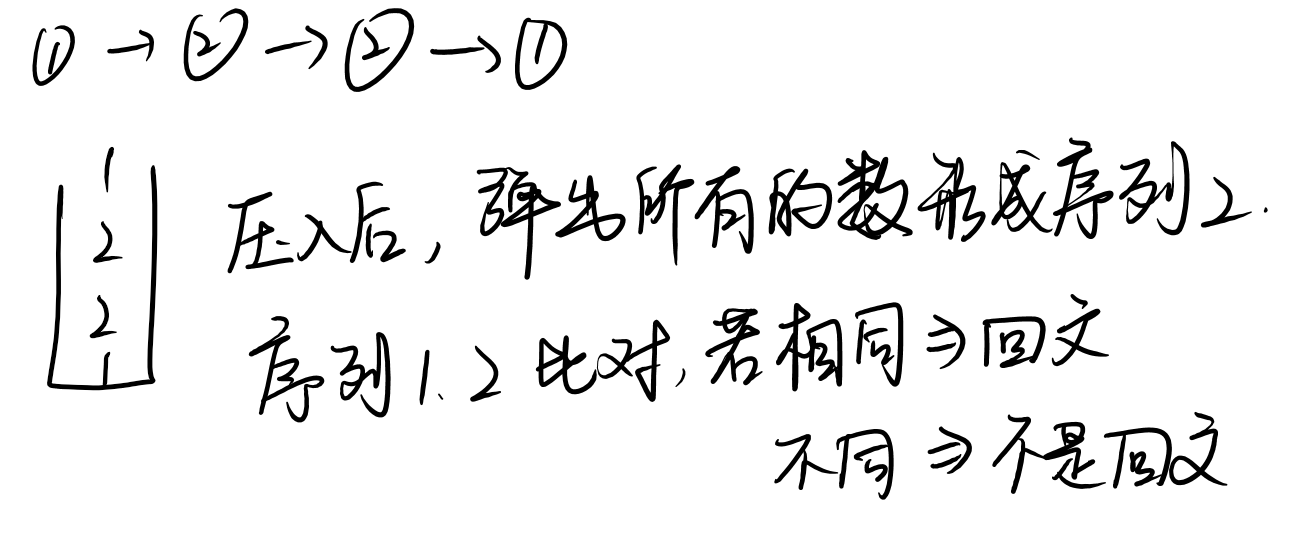 ① → ② → ② → ①
1
2
2
1
压入后, 弹出所有的数形成序列2.
序列1、2比对, 若相同 ⇒ 回文
不同 ⇒ 不是回文